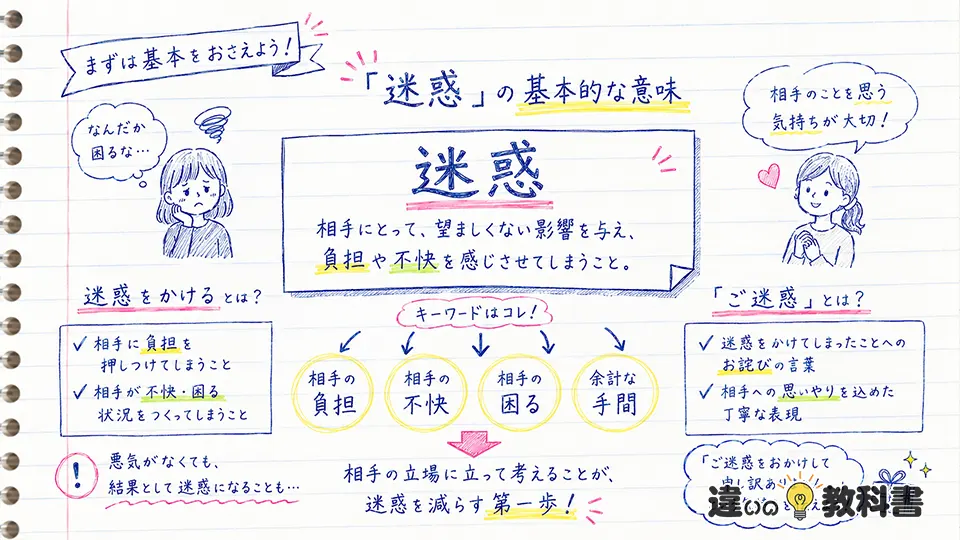 まずは基本をおさえよう!
「迷惑」の基本的な意味
なんだか
困るな…
相手のことを思う
気持ちが大切!
迷惑
相手にとって、望ましくない影響を与え、
負担や不快を感じさせてしまうこと。
迷惑をかけるとは?
✓ 相手に負担を
押しつけてしまうこと
✓ 相手が不快・困る
状況をつくってしまうこと
キーワードはコレ!
相手の
負担
相手の
不快
相手の
困る
余計な
手間
「ご迷惑」とは?
✓ 迷惑をかけてしまったことへの
お詫びの言葉
✓ 相手への思いやりを込めた
丁寧な表現
! 悪気がなくても、
結果として迷惑になることも…
相手の立場に立って考えることが、
迷惑を減らす第一歩!
「ご迷惑をおかけして
申し訳あ
違いの教科書